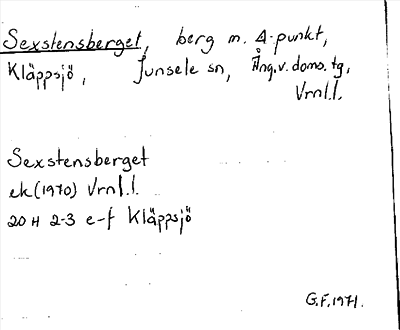 Sexstensberget, berg m. Δ-punkt,
Kläppsjö, Junsele sn, Ång.v.doms.tg,
Vrnl.l.
Sexstensberget
ek(1970) Vrnl.l.
20 H 2-3 e-f Kläppsjö
G.F.1971.